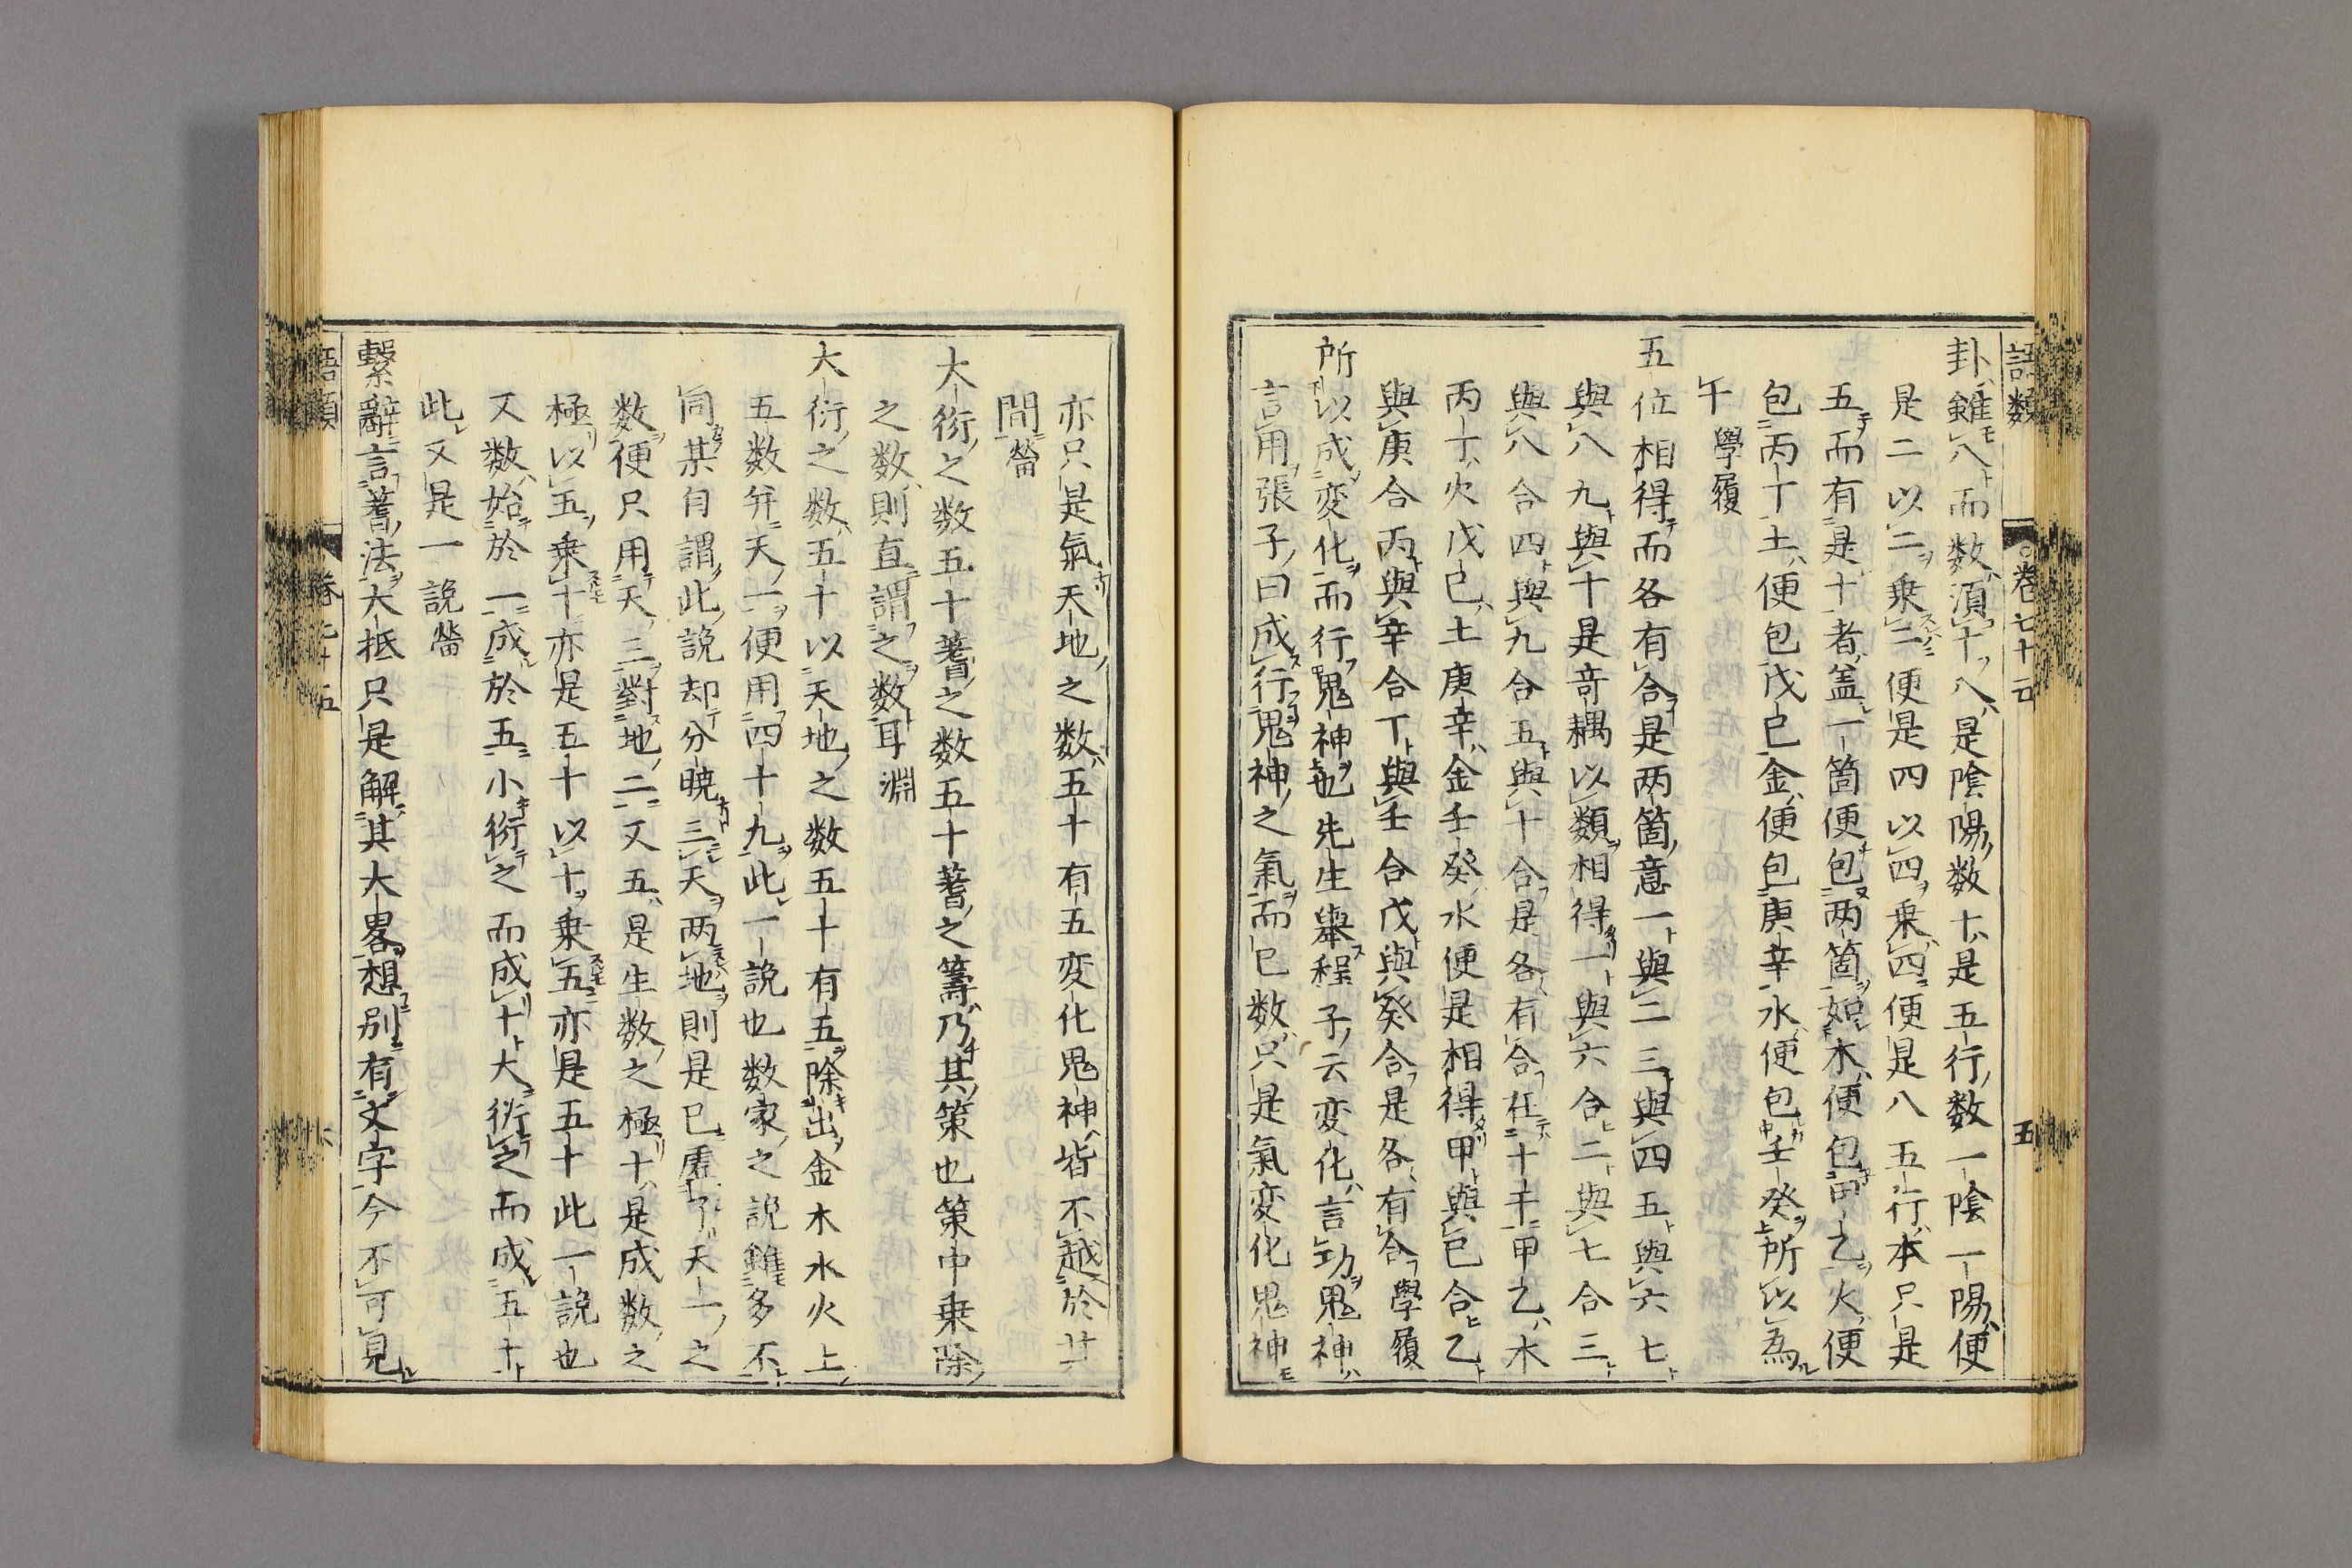 語類
卷七十五
五
卦雖八而数須十八是陰陽数十是五行数一陰一陽便
是二以二乗二便是四以四乗四便是八五行本只是
五而有是十者盖一箇便包两箇如木便包甲乙火便
包丙丁土便包戊己金便包庚辛水便包壬癸所以為
午學履
五位相得而各有合是两箇意一與二三與四五與六七
與八九與十是竒耦以類相得一與六合二與七合三
與八合四與九合五與十合是各有合在十干甲乙木
丙丁火戊己土庚辛金壬癸水便是相得甲與己合乙
與庚合丙與辛合丁與壬合戊與癸合是各有合學履
所以成変化而行鬼神也先生舉程子云変化言功鬼神
言用張子曰成行鬼神之氣而已数只是氣変化鬼神
亦只是氣天地之数五十有五変化鬼神皆不越於其
間㽦
大衍之数五十蓍之数五十蓍之籌乃其策也策中乗除
之数則直謂之数耳淵
大衍之数五十以天地之数五十有五除出金木水火土
五数并天一便用四十九此一説也数家之説雖多不
同某自謂此説却分曉三天两地則是已虚了天一之
数便只用天三對地二又五是生数之極十是成数之
極以五乗十亦是五十以十乗五亦是五十此一説也
又数始於一成於五小衍之而成十大衍之而成五十
此又是一説㽦
繫辭言蓍法大抵只是解其大畧想別有文字今不可見
語類
卷七十五